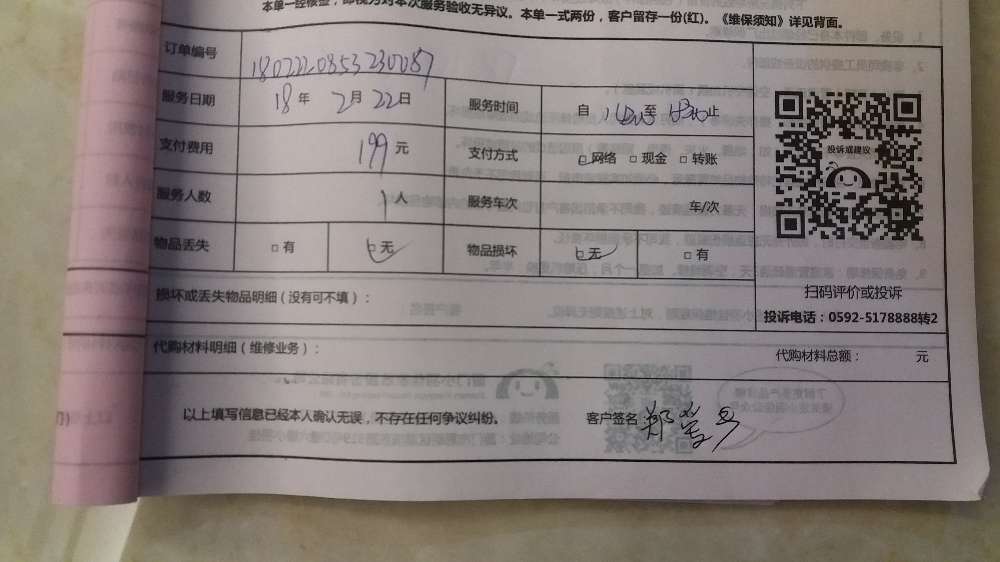 本单一经核签，即视为对本次服务验收无异议。本单一式两份，客户留存一份(红)。《维保须知》详见背面。
订单编号
服务日期 18 年 2 月 22 日 服务时间 自 至 止
支付费用 199 元 支付方式 □ 网络 □ 现金 □ 转账
服务人数 1 人 服务车次 车/次
物品丢失 □ 有 □ 无 物品损坏 □ 无 □ 有
投诉或建议
扫码评价或投诉
投诉电话：0592-5178888转2
损坏或丢失物品明细（没有可不填）：
代购材料明细（维修业务）： 代购材料总额： 元
以上填写信息已经本人确认无误，不存在任何争议纠纷。 客户签名